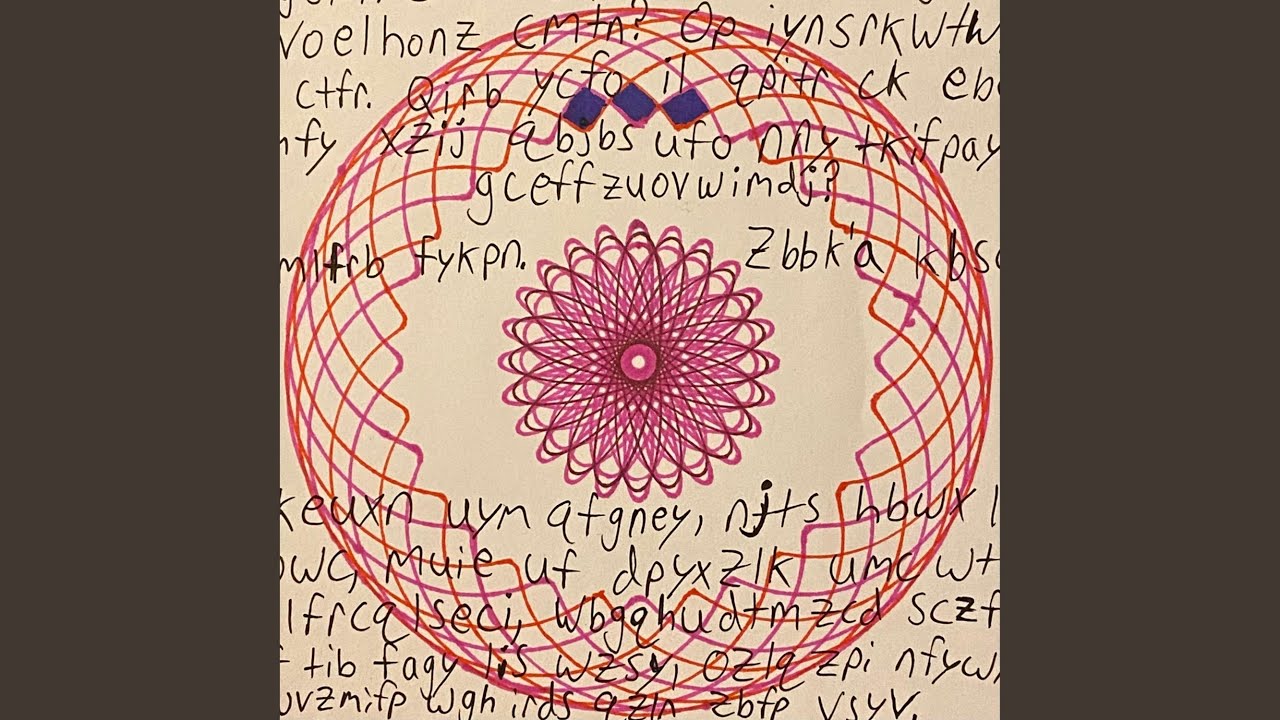 voelhonz cmtn? Op iynsrkwtw
ctfr. Qirb ycfo il qpitr ck ebc
nfy xzij qbjbs ufo nny tkifpay
gceffzuovwimdj?
mlfrb fykpn. Zbbk'a kbsc
keuxn uym qfgney, njts hbwx l
owc, muie uf dpyxzlk umc wt
lfrcqlseci, wbgqhudtmzcd sczf
tib faqy lis wzsy, ozlq zpi nfyw
uvzmifp wgh irds qzln zbfp vsyv.